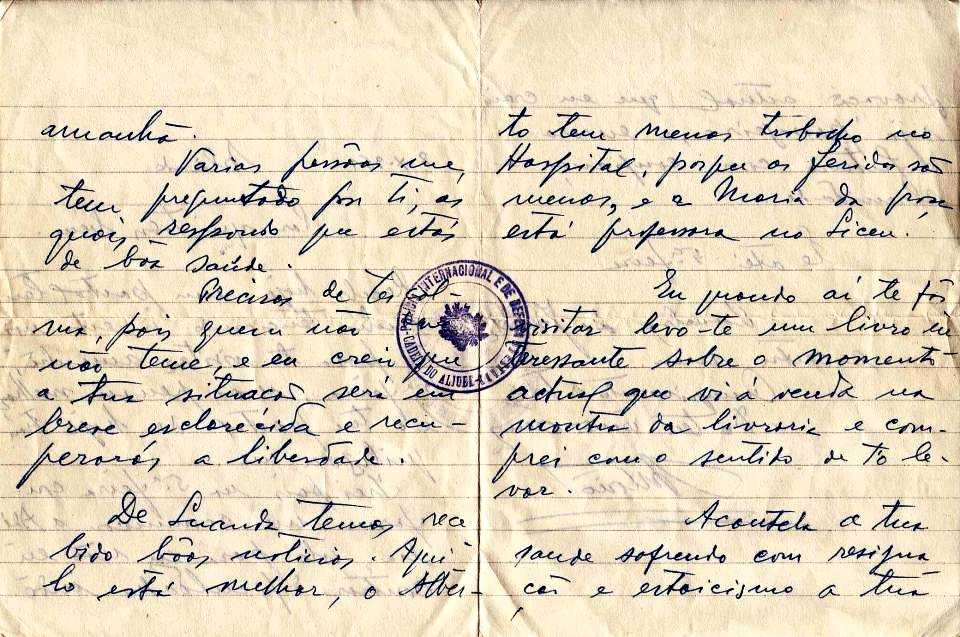 amanhã.
Varias pessôas me,
tem preguntado por ti, ás
quais respondo que estás
de bôa saúde.
Precisas de ter cal-
ma, pois quem não
não teme, e eu creio que
a tua situação será em
breve esclarécida e recu-
perarás a liberdade.
De Luanda temos rece
bido bôas noticias. Aqui
lo está melhor, o Alber-
to tem menos trabalho no
Hospital, porque os feridos são
menos, e a Maria da
está professora no Liceu.
Eu quando aí te fôr
visitar levo-te um livro in
teressante sobre o momento
actual que vi á venda na
montra da livraria e com-
prei com o sentido de t'o le-
var.
Acautela a tua
saude sofrendo com resigna
ção e estoicismo a tua
POLICIA INTERNACIONAL E DE DEFESA DO ESTADO
CADEIA DO ALJUBE